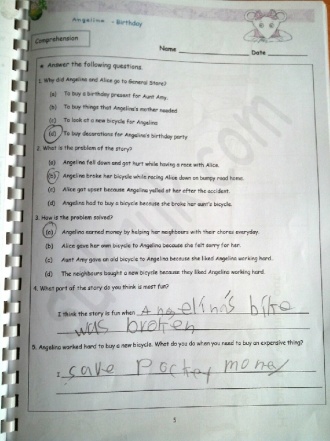 Angelina - Birthday
Comprehension
Name
Date
Answer the following questions.
1. Why did Angelina and Alice go to General Store?
(a) To buy a birthday present for Aunt Amy.
(b) To buy things that Angelina's mother needed
(c) To look at a new bicycle for Angelina
(d) To buy decorations for Angelina's birthday party
2. What is the problem of the story?
(a) Angelina fell down and got hurt while having a race with Alice.
(b) Angelina broke her bicycle while racing Alice down on bumpy road home.
(c) Alice got upset because Angelina yelled at her after the accident.
(d) Angelina had to buy a bicycle because she broke her aunt's bicycle.
3. How is the problem solved?
(a) Angelina earned money by helping her neighbours with their chores everyday.
(b) Alice gave her own bicycle to Angelina because she felt sorry for her.
(c) Aunt Amy gave an old bicycle to Angelina because she liked Angelina working hard.
(d) The neighbours bought a new bicycle because they liked Angelina working hard.
4. What part of the story do you think is most fun?
I think the story is fun when Angelina's bike
was broken
5. Angelina worked hard to buy a new bicycle. What do you do when you need to buy an expensive thing?
I save Pocket money
5